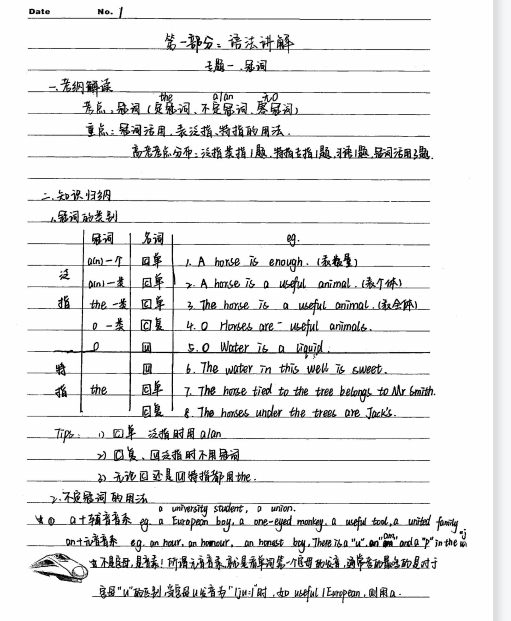 Date No. 1
第一部分：语法讲解
专题一、冠词
一.考纲解读
the a/an 无0
考点：冠词（定冠词、不定冠词、零冠词）
重点：冠词活用、表泛指、特指的用法.
高考考点分布：泛指类指1题、特指专指1题、习语1题、冠词活用3题.
二、知识归纳
1.冠词的类别
冠词 名词 eg.
泛指 a(n)一个 C单 1. A horse is enough. (表数量)
a(n)一类 C单 2. A horse is a useful animal. (表个体)
the 一类 C单 3. The horse is a useful animal. (表全体)
0 一类 C复 4. 0 Horses are - useful animals.
0 U 5. 0 Water is a liquid.
特指 the U 6. The water in this well is sweet.
C单 7. The horse tied to the tree belongs to Mr Smith.
C复 8. The horses under the trees are Jack's.
Tips: 1) C单 泛指时用 a/an
2) C复、U泛指时不用冠词
3) 无论C还是U特指都用the.
2.不定冠词的用法
a university student, a union.
① a+辅音音素 eg. a European boy, a one-eyed monkey, a useful tool, a united family
an+元音音素 eg. an hour, an honour, an honest boy, There is a "u", an "m" and a "p" in the
不是字母，是音素！所谓元音音素，就是看单词第一个字母的发音，通常
字母"u"的区别，当字母u发音为"[ju:]"时，如 useful / European, 则用a.